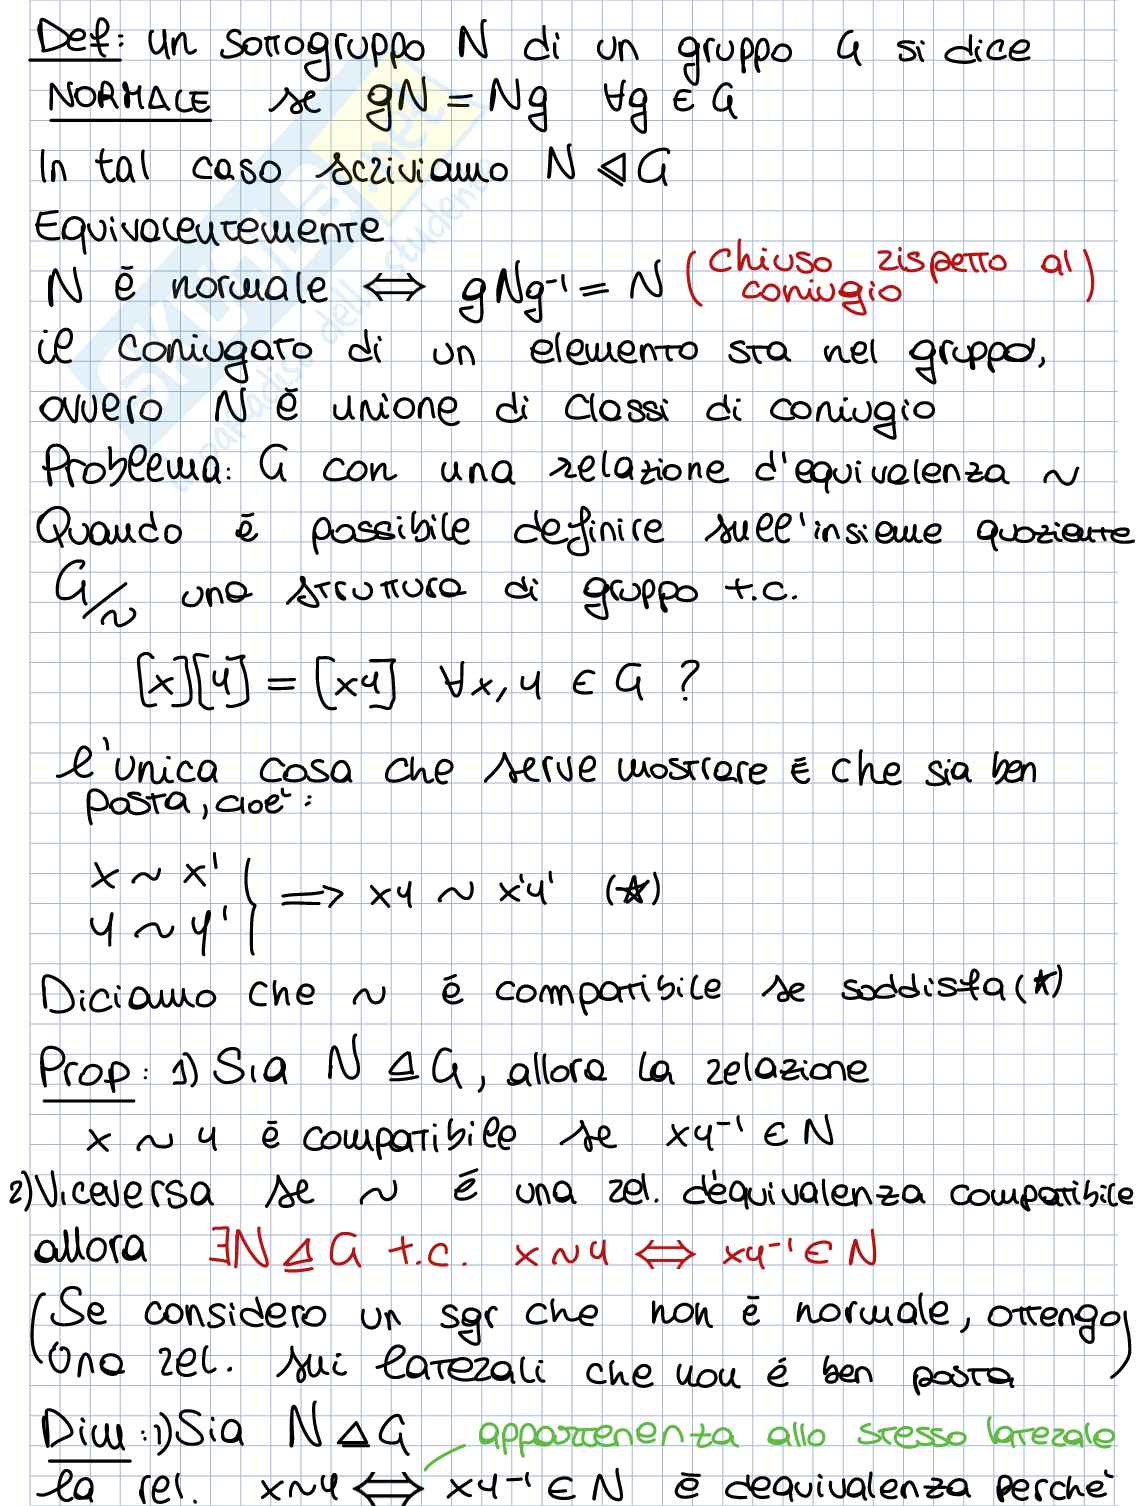 Def: un sottogruppo N di un gruppo G si dice
NORMALE se gN = Ng ∀g ∈ G
In tal caso scriviamo N ⊲ G
Equivalentemente
N è normale ⟺ gNg⁻¹ = N (chiuso rispetto al
coniugio)
il coniugato di un elemento sta nel gruppo,
ovvero N è unione di classi di coniugio
Problema: G con una relazione d'equivalenza ~
Quando è possibile definire sull'insieme quoziente
G/~ una struttura di gruppo t.c.
[x][y] = [xy] ∀x, y ∈ G ?
l'unica cosa che serve mostrare è che sia ben
posta, cioè:
x ~ x'
y ~ y' } ⟹ xy ~ x'y' (★)
Diciamo che ~ è compatibile se soddisfa (★)
Prop: 1) Sia N ⊴ G, allora la relazione
x ~ y è compatibile se xy⁻¹ ∈ N
2) Viceversa se ~ è una rel. d'equivalenza compatibile
allora ∃N ⊴ G t.c. x~y ⟺ xy⁻¹ ∈ N
(Se considero un sgr che non è normale, ottengo
una rel. sui laterali che non è ben posta)
Dim: 1) Sia N △ G appartenenza allo stesso laterale
la rel. x~y ⟺ xy⁻¹ ∈ N è d'equivalenza perchè
SKUOLA.net
il paradiso dello studente